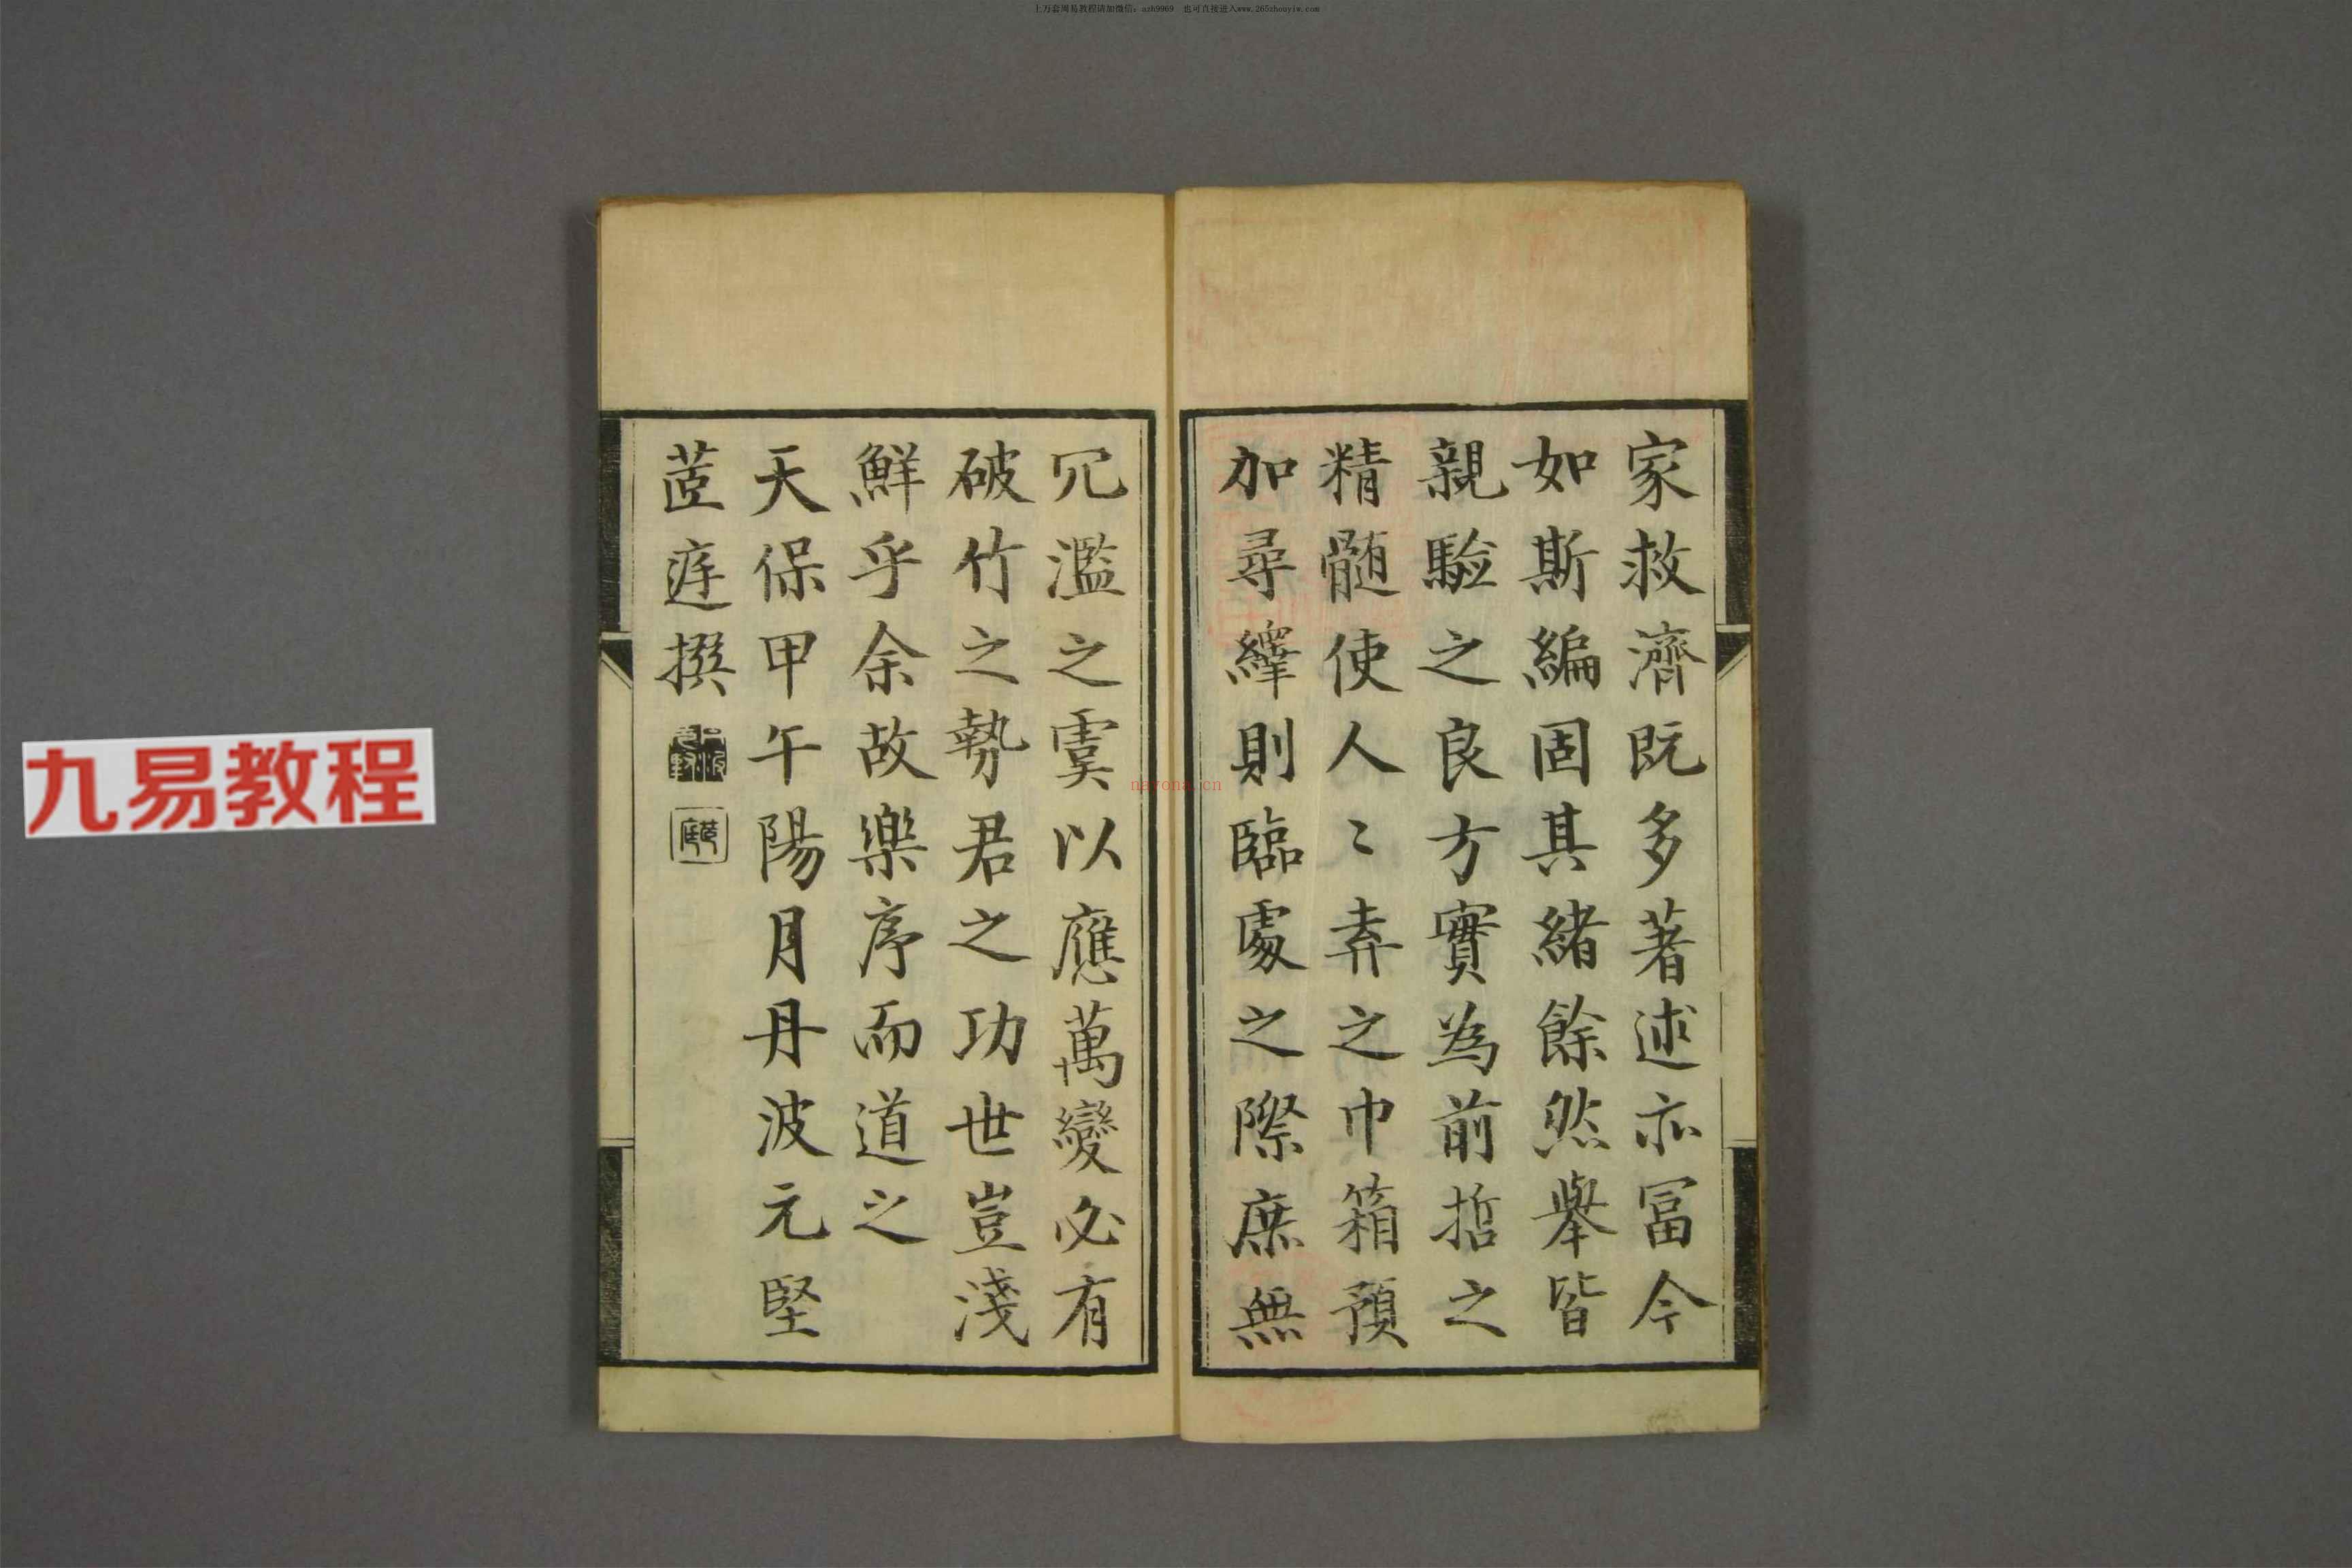 上万套周易教程请加微信：azh9969　也可直接进入www.265zhouyiw.com
家救濟既多著述亦冨今
如斯編固其緒餘然舉皆
親驗之良方實為前哲之
精髄使人〻弆之巾箱預
加尋繹則臨處之際庶無
冗濫之虞以應萬變必有
破竹之勢君之功世豈淺
鮮乎余故樂序而道之
天保甲午陽月丹波元堅
茝庭撰
九易教程
nayona.cn